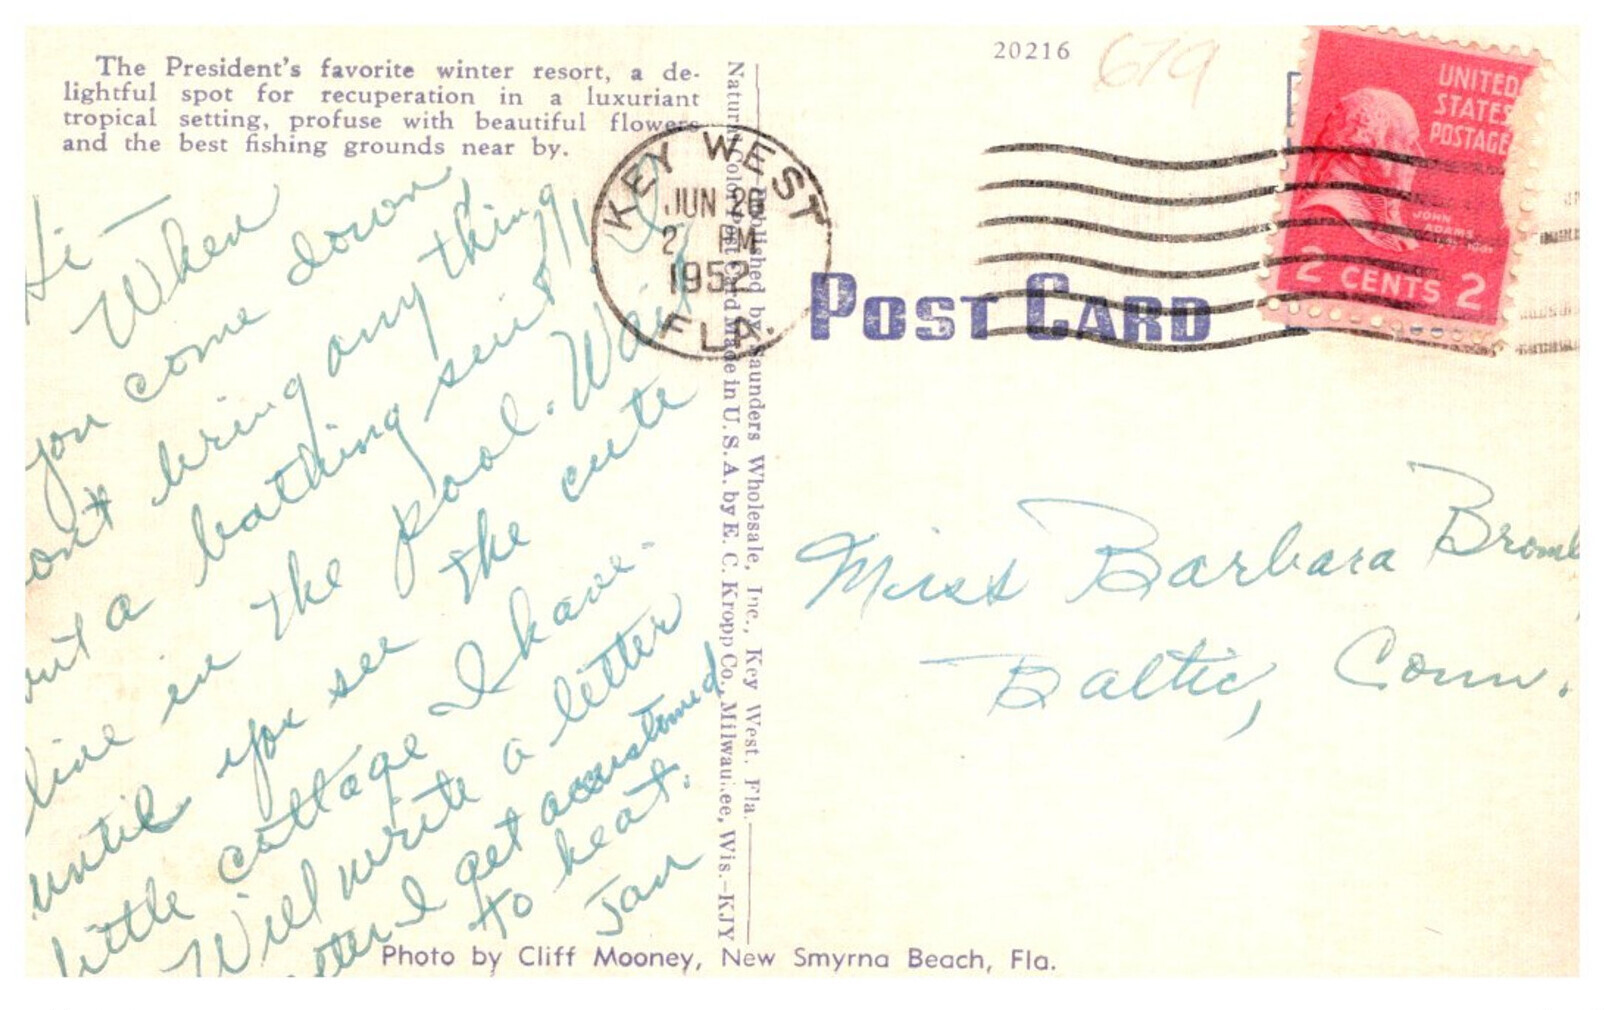 The President's favorite winter resort, a de-
lightful spot for recuperation in a luxuriant
tropical setting, profuse with beautiful flowers
and the best fishing grounds near by.
Hi —
When
you come down
don't bring any thing
but a bathing suit I'll
live in the pool. Wait
until you see the cute
little cottage I have.
Will write a letter
after I get accustomed
to heat.
Jan
Published by Saunders Wholesale, Inc., Key West, Fla.
Natural Color Post Card Made in U. S. A. by E. C. Kropp Co., Milwaukee, Wis.—KJY
Photo by Cliff Mooney, New Smyrna Beach, Fla.
20216
679
KEY WEST
JUN 26
2 PM
1952
FLA.
POST CARD
UNITED
STATES
POSTAGE
JOHN
ADAMS
2 CENTS 2
Miss Barbara
Baltic, Conn.